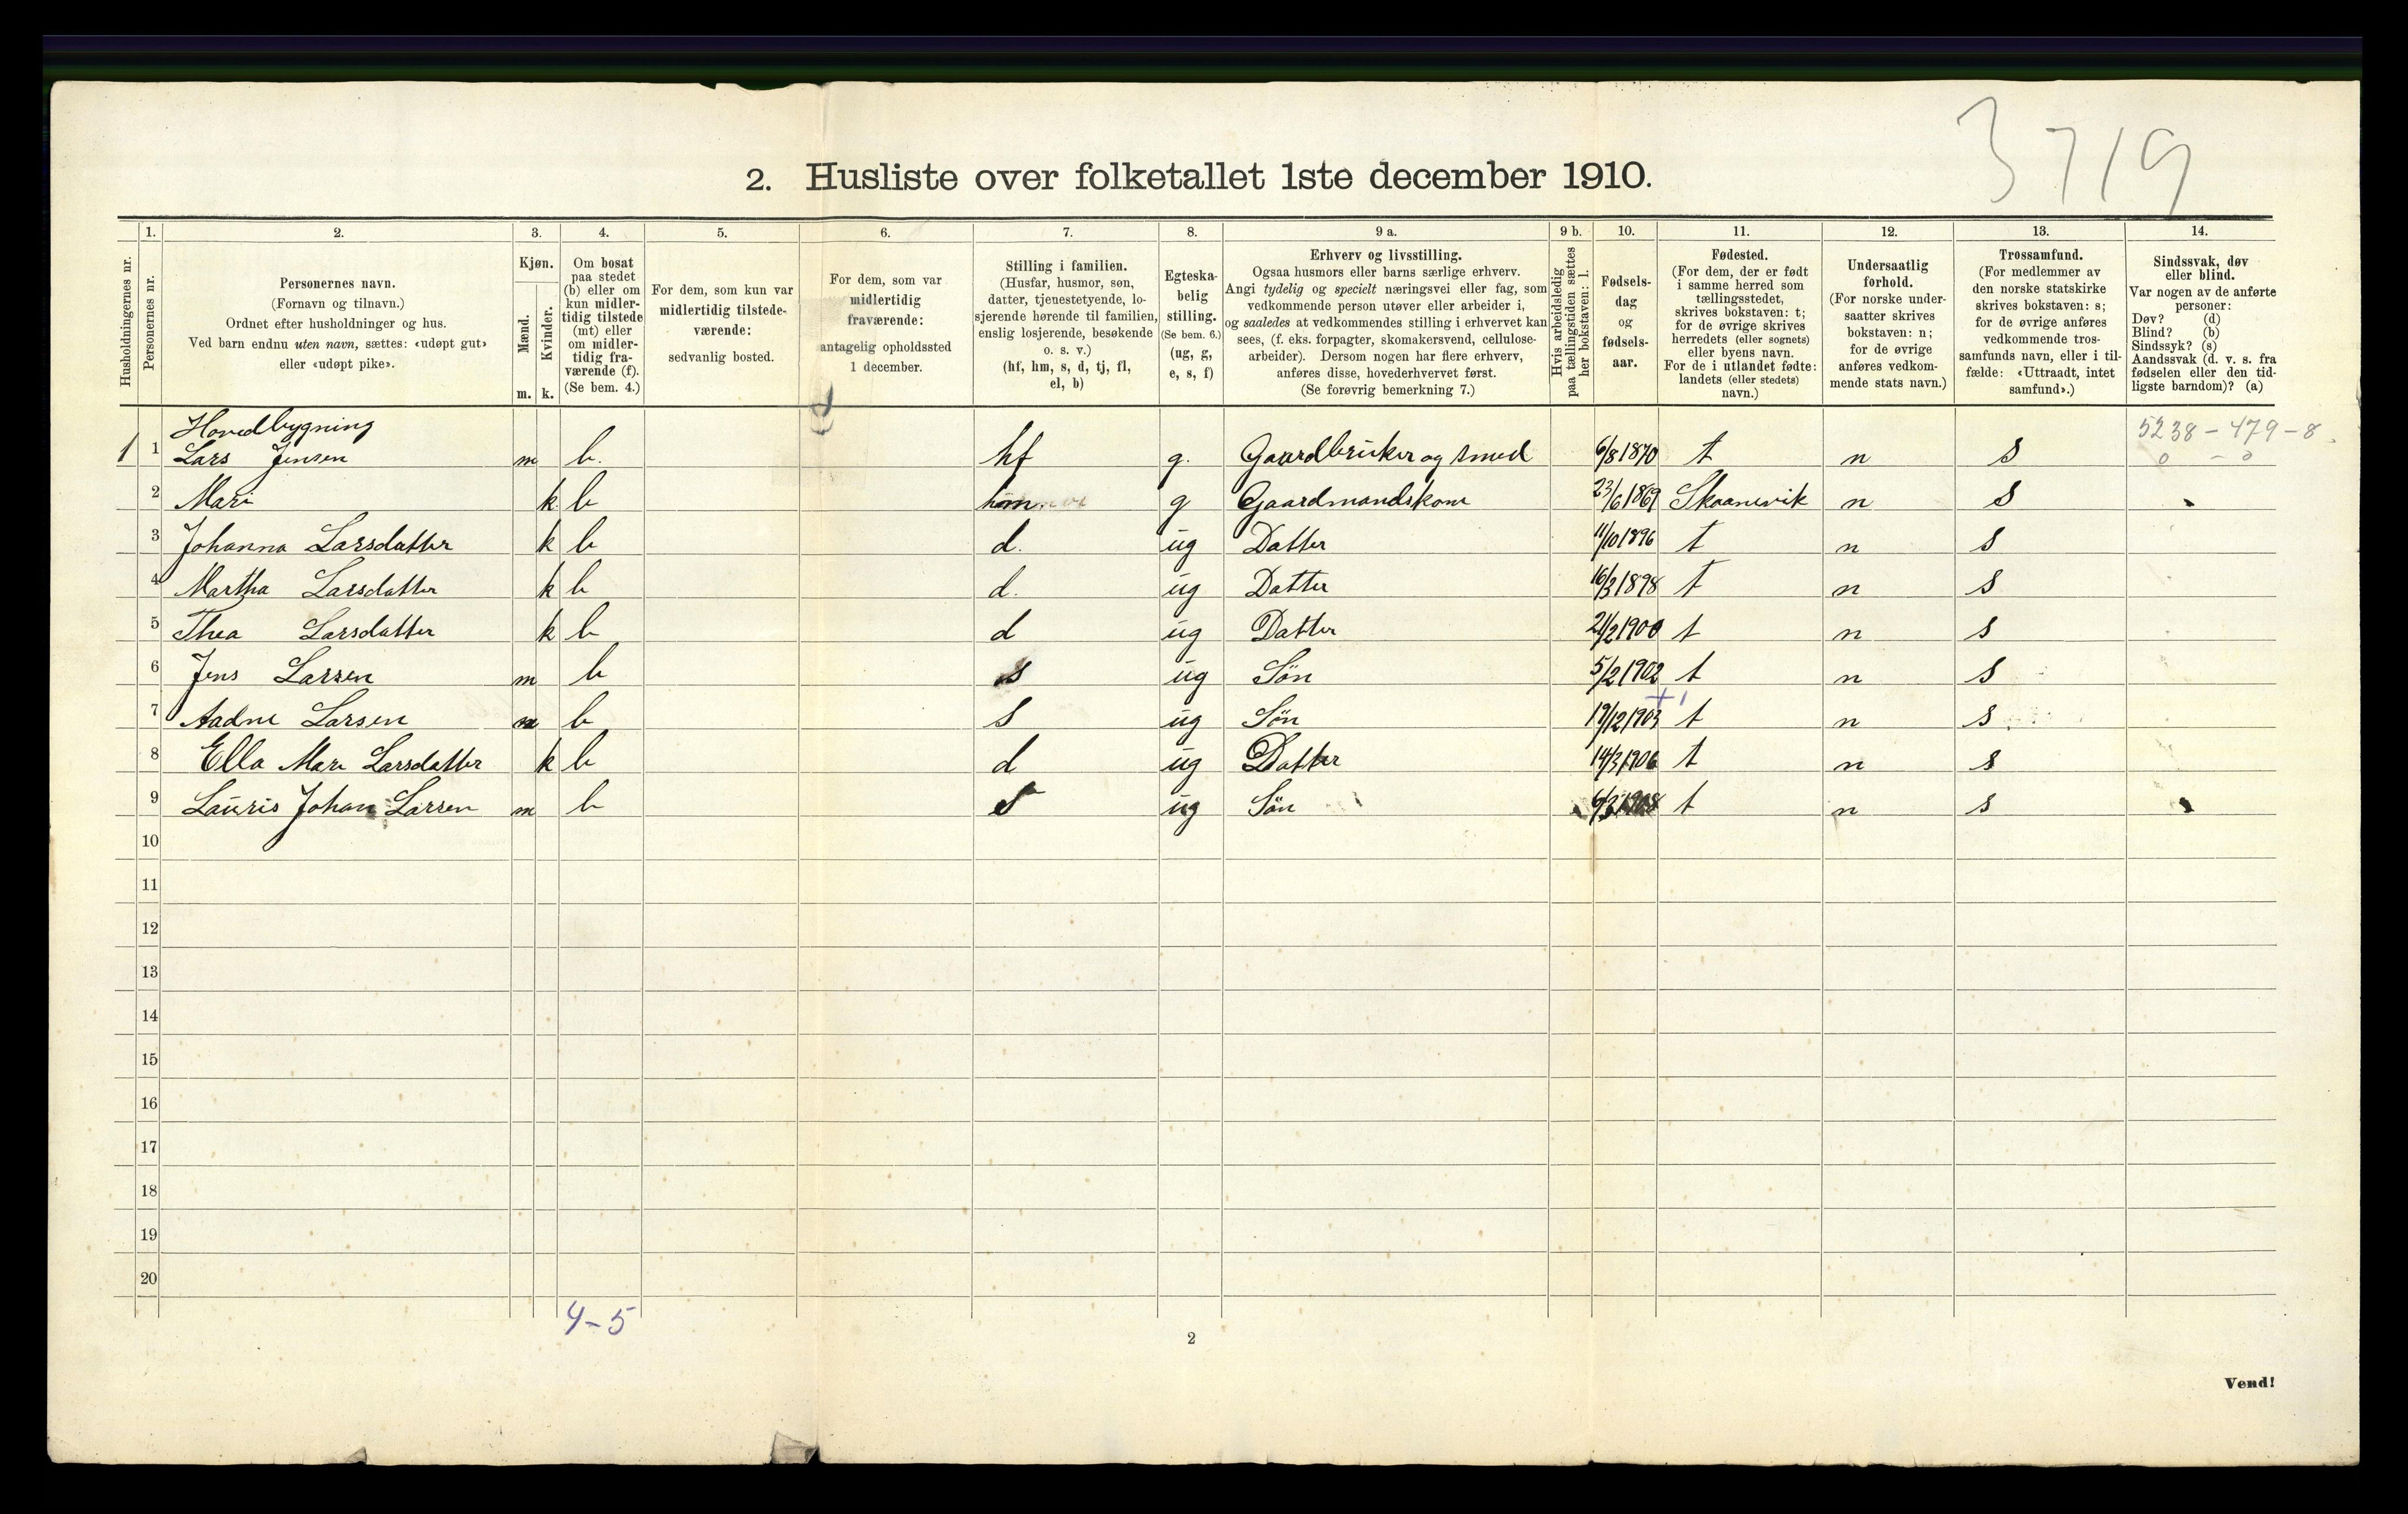 3719
2. Husliste over folketallet 1ste december 1910.
Husholdningernes nr.
1.
Personernes nr.
2.
Personernes navn.
(Fornavn og tilnavn.)
Ordnet efter husholdninger og hus.
Ved barn endnu uten navn, sættes: «udøpt gut»
eller «udøpt pike».
3.
Kjøn.
Mænd.
Kvinder.
m. k.
4.
Om bosat
paa stedet
(b) eller om
kun midler-
tidig tilstede
(mt) eller
om midler-
tidig fra-
værende (f).
(Se bem. 4.)
5.
For dem, som kun var
midlertidig tilstede-
værende:
sedvanlig bosted.
6.
For dem, som var
midlertidig
fraværende:
antagelig opholdssted
1 december.
7.
Stilling i familien.
(Husfar, husmor, søn,
datter, tjenestetyende, lo-
sjerende hørende til familien,
enslig losjerende, besøkende
o. s. v.)
(hf, hm, s, d, tj, fl,
el, b)
8.
Egteska-
belig
stilling.
(Se bem. 6.)
(ug, g,
e, s, f)
9 a.
Erhverv og livsstilling.
Ogsaa husmors eller barns særlige erhverv.
Angi tydelig og specielt næringsvei eller fag, som
vedkommende person utøver eller arbeider i,
og saaledes at vedkommendes stilling i erhvervet kan
sees, (f. eks. forpagter, skomakersvend, cellulose-
arbeider). Dersom nogen har flere erhverv,
anføres disse, hovederhvervet først.
(Se forøvrig bemerkning 7.)
9 b.
Hvis arbeidsledig
paa tællingstiden sættes
her bokstaven: l.
10.
Fødsels-
dag
og
fødsels-
aar.
11.
Fødested.
(For dem, der er født
i samme herred som
tællingsstedet,
skrives bokstaven: t;
for de øvrige skrives
herredets (eller sognets)
eller byens navn.
For de i utlandet fødte:
landets (eller stedets)
navn.)
12.
Undersaatlig
forhold.
(For norske under-
saatter skrives
bokstaven: n;
for de øvrige
anføres vedkom-
mende stats navn.)
13.
Trossamfund.
(For medlemmer av
den norske statskirke
skrives bokstaven: s;
for de øvrige anføres
vedkommende tros-
samfunds navn, eller i til-
fælde: «Uttraadt, intet
samfund».)
14.
Sindssvak, døv
eller blind.
Var nogen av de anførte
personer:
Døv? (d)
Blind? (b)
Sindssyk? (s)
Aandssvak (d. v. s. fra
fødselen eller den tid-
ligste barndom)? (a)
Hovedbygning
5238 - 479 - 8
0 - 0
1 1 Lars Jensen m b. hf g. Gaardbruker og smed 6/8 1870 t n s
2 Mari k b hm g Gaardmandskone 23/6 1869 Skaanevik n s
3 Johanna Larsdatter k b d. ug Datter 11/10 1896 t n s
4 Martha Larsdatter k b d. ug Datter 16/3 1898 t n s
5 Thea Larsdatter k b d ug Datter 21/2 1900 t n s
6 Jens Larsen m b s ug Sön 5/2 1902 t n s
7 Aadne Larsen m b s ug Sön 19/12 1903 t n s
8 Ella Mari Larsdatter k b d ug Datter 14/3 1906 t n s
9 Lauris Johan Larsen m b s ug Sön 6/3 1908 t n s
10
11
12
13
14
15
16
17
18
19
20
4-5
2
Vend!